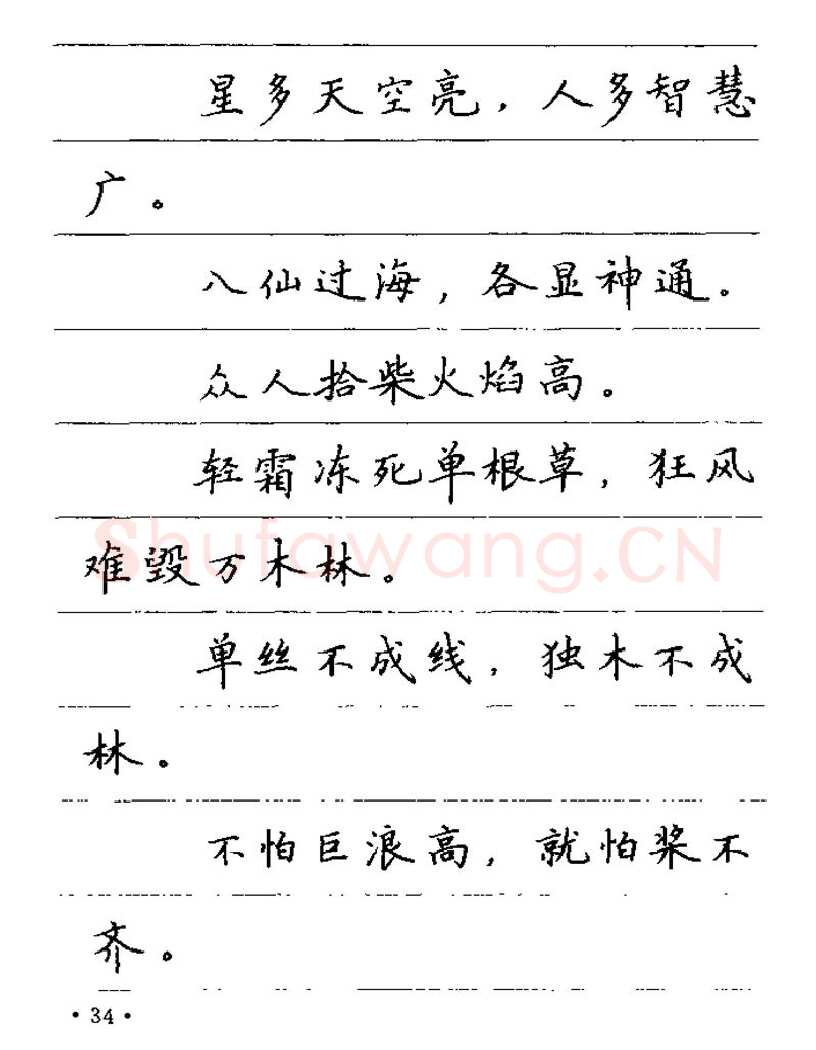 星多天空亮，人多智慧
广。
八仙过海，各显神通。
众人拾柴火焰高。
轻霜冻死单根草，狂风
难毁万木林。
Shufawang.CN
单丝不成线，独木不成
林。
不怕巨浪高，就怕桨不
齐。
·34·